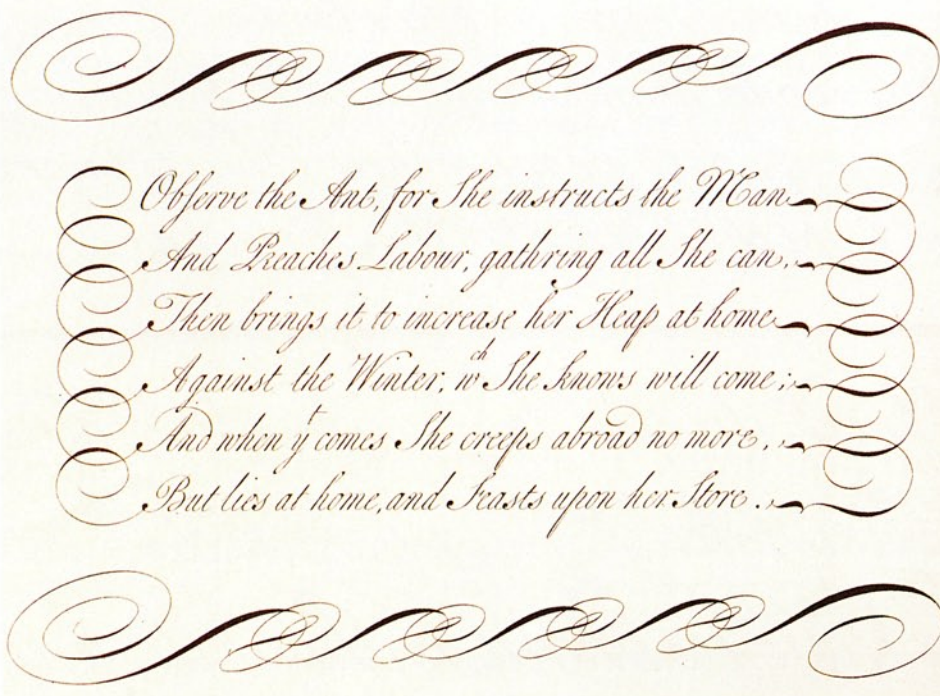 Obſerve the Ant, for She instructs the Man
And Preaches Labour, gathring all She can,
Then brings it to increase her Heap at home
Against the Winter, wᶜʰ She knows will come;
And when yᵗ comes She creeps abroad no more,
But lies at home, and Feasts upon her Store.